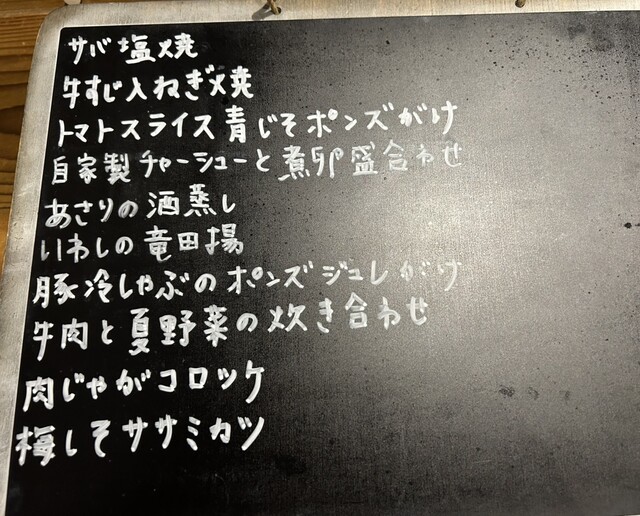 サバ塩焼
牛すじ入ねぎ焼
トマトスライス青じそポンズがけ
自家製チャーシューと煮卵盛合わせ
あさりの酒蒸し
いわしの竜田揚
豚冷しゃぶのポンズジュレがけ
牛肉と夏野菜の炊き合わせ
肉じゃがコロッケ
梅しそササミカツ